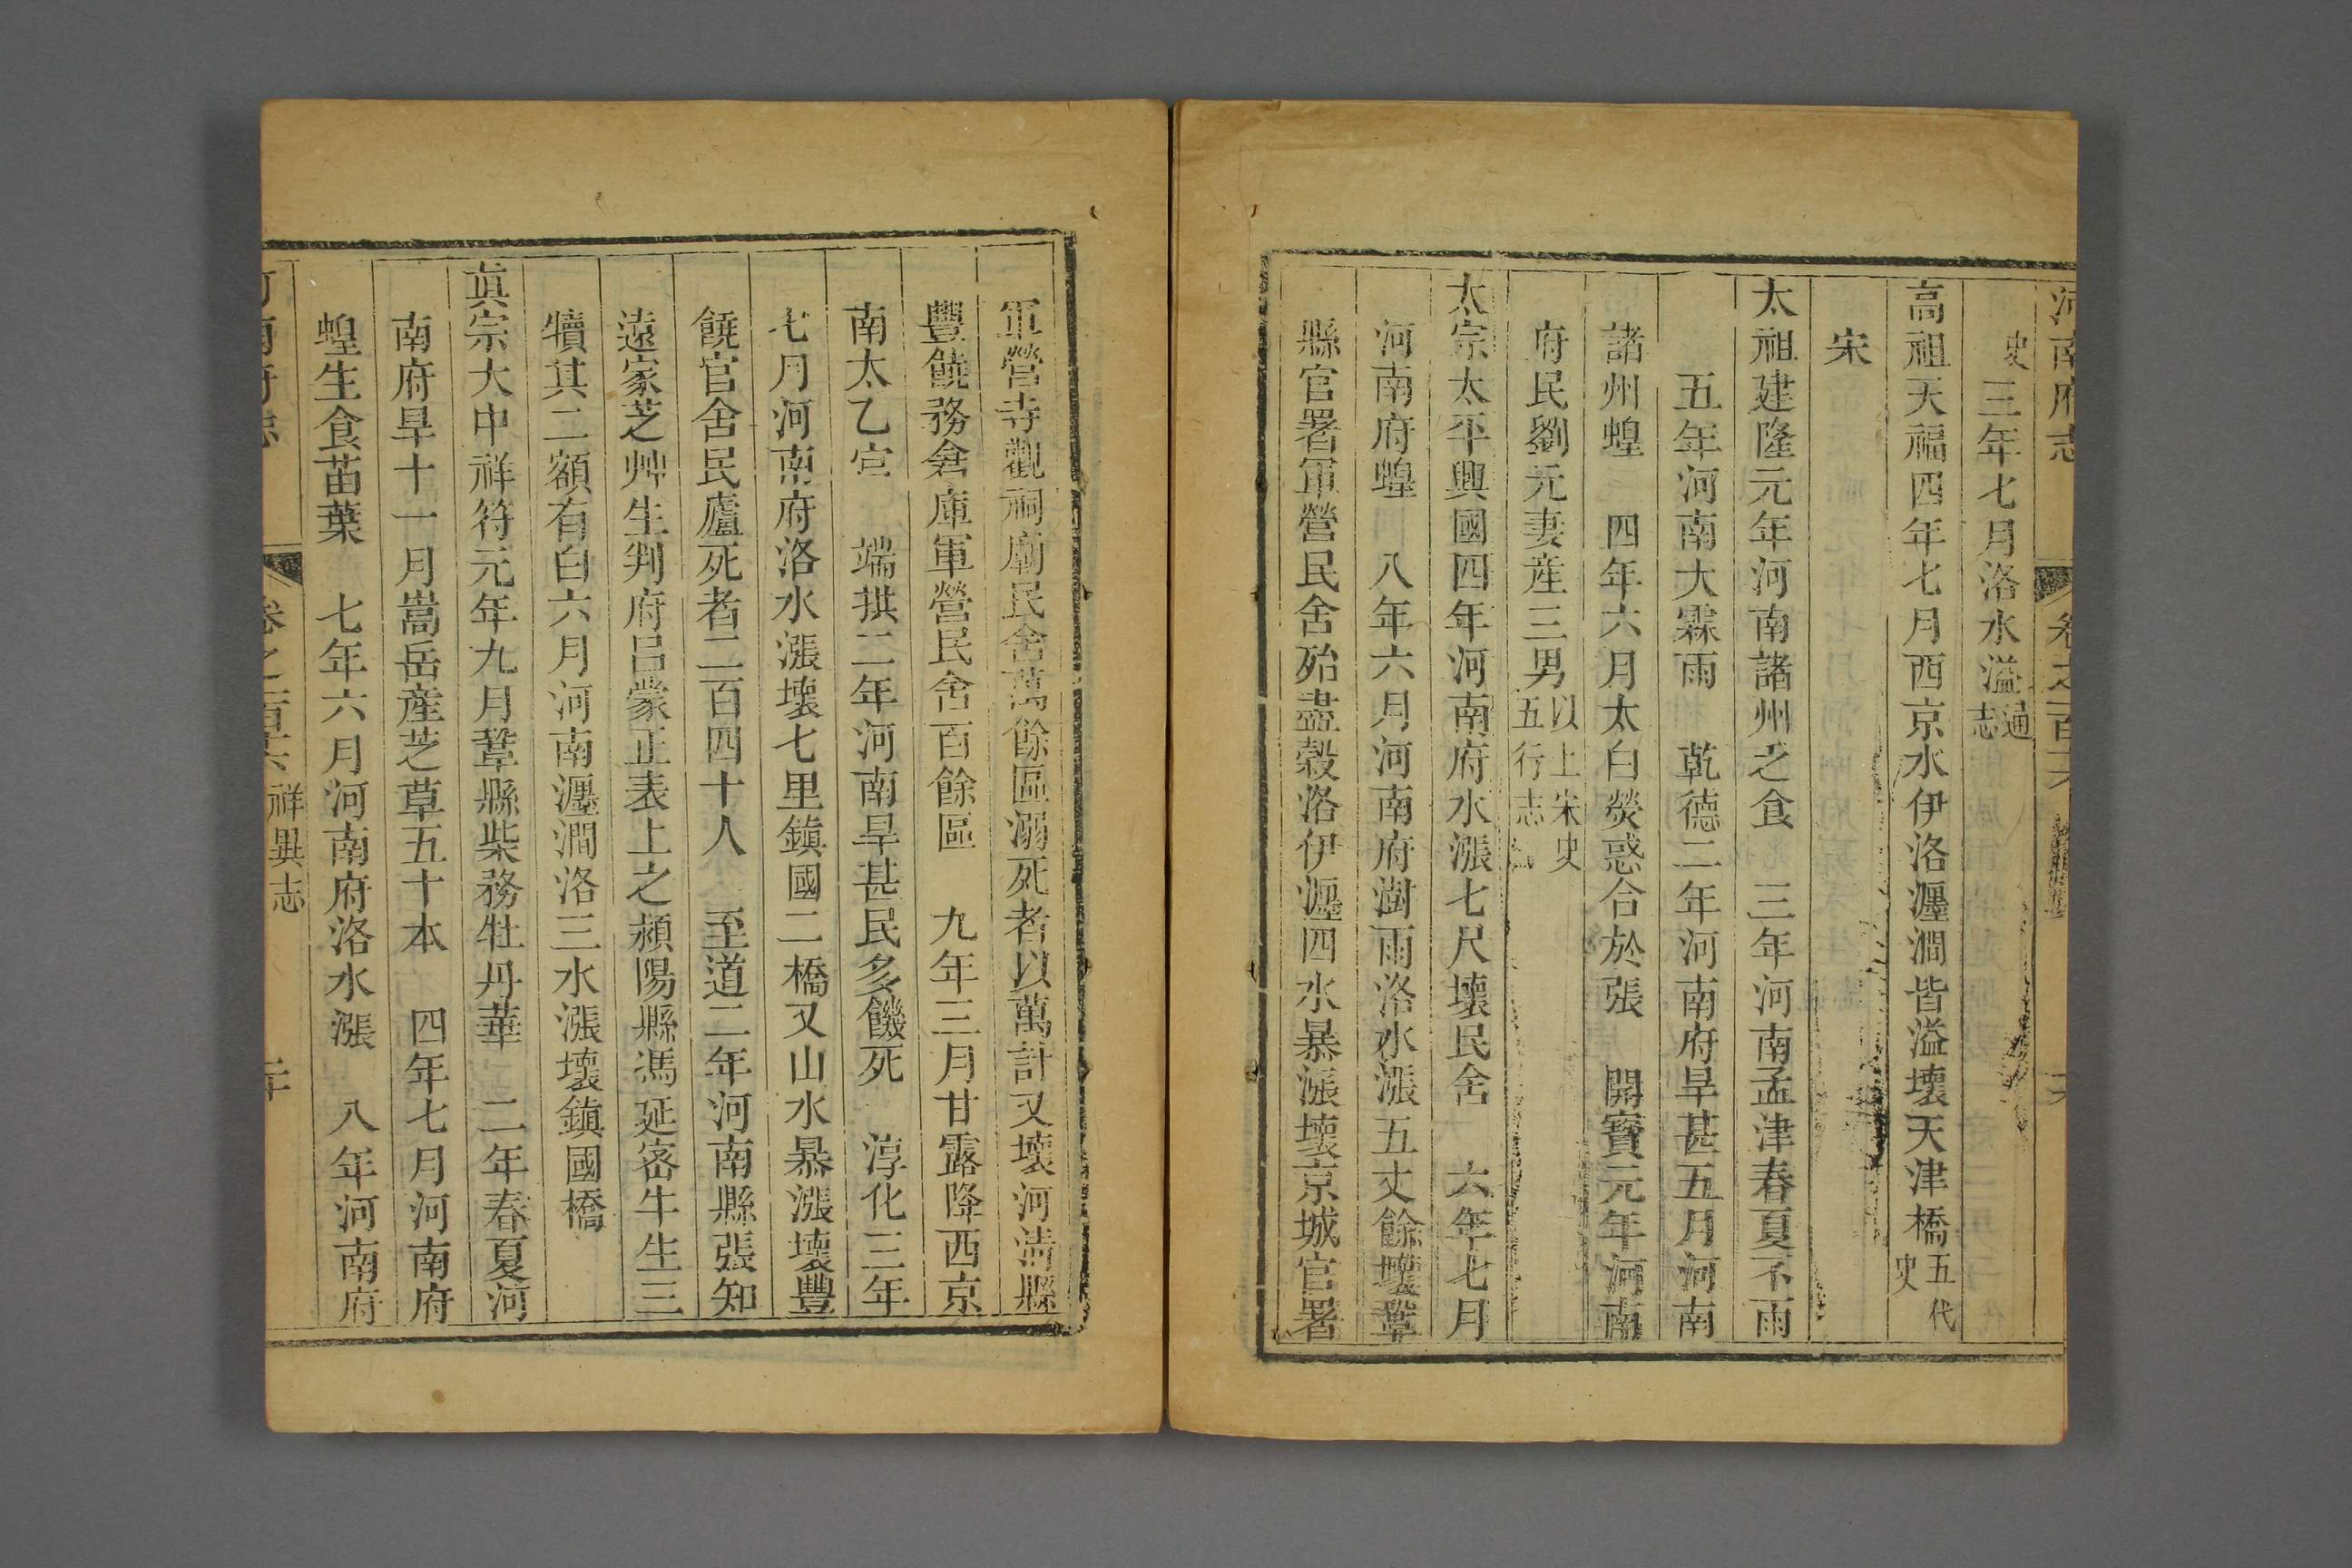 河南府志 卷之一百十六
史三年七月洛水溢通志
高祖天福四年七月西京水伊洛瀍澗皆溢壞天津橋五代史
宋
太祖建隆元年河南諸州乏食 三年河南孟津春夏不雨
五年河南大霖雨 乾德二年河南府旱甚五月河南
諸州蝗 四年六月太白熒惑合於張 開寶元年河南
府民劉元妻産三男以上宋史五行志
太宗太平興國四年河南府水漲七尺壞民舍 六年七月
河南府蝗 八年六月河南府澍雨洛水漲五丈餘壞鞏
縣官署軍營民舍殆盡榖洛伊瀍四水暴漲壞京城官署
軍營寺觀祠廟民舍萬餘區溺死者以萬計又壞河淸縣
豐饒務倉庫軍營民舍百餘區 九年三月甘露降西京
南太乙宮 端拱二年河南旱甚民多饑死 淳化三年
七月河南府洛水漲壞七里鎭國二橋又山水暴漲壞豐
饒官舍民廬死者二百四十人 至道二年河南縣張知
遠家芝艸生判府呂蒙正表上之潁陽縣馮延密牛生三
犢其二額有白六月河南瀍澗洛三水漲壞鎭國橋
眞宗大中祥符元年九月鞏縣柴務牡丹華 二年春夏河
南府旱十一月嵩岳産芝草五十本 四年七月河南府
蝗生食苗葉 七年六月河南府洛水漲 八年河南府
河南府志 卷之一百十六 祥異志